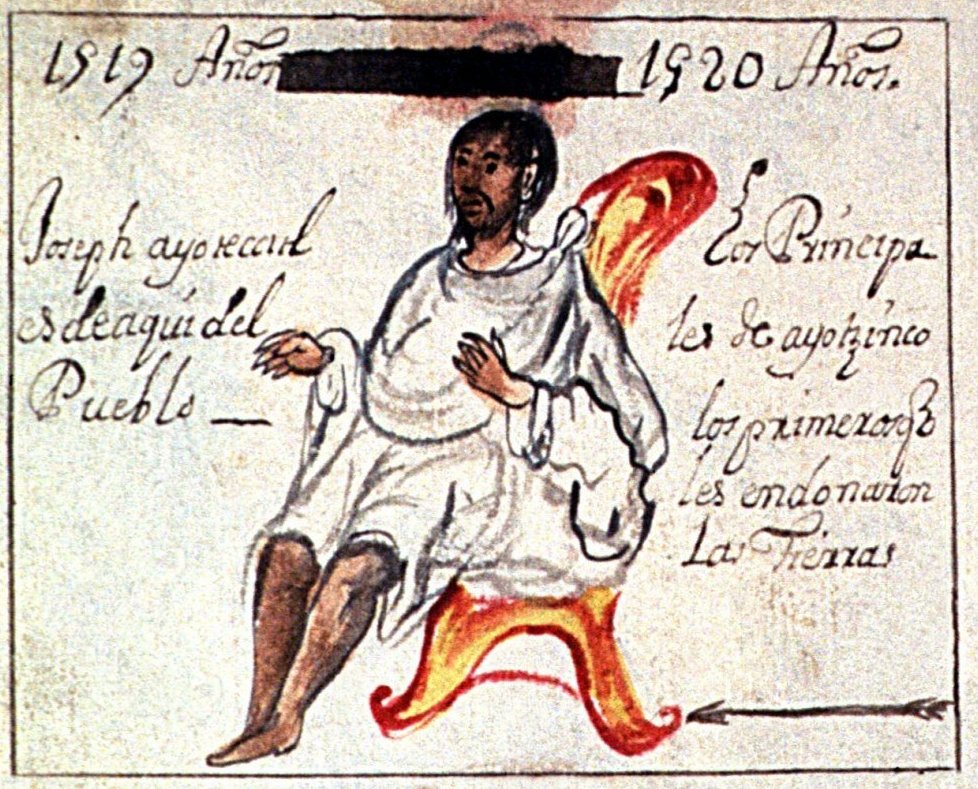 1519 Años 1520 Años.
Joseph
es de aqui del
Pueblo
Los Principa
les de ayotzinco
los primeros q
les endonaron
Las Tierras